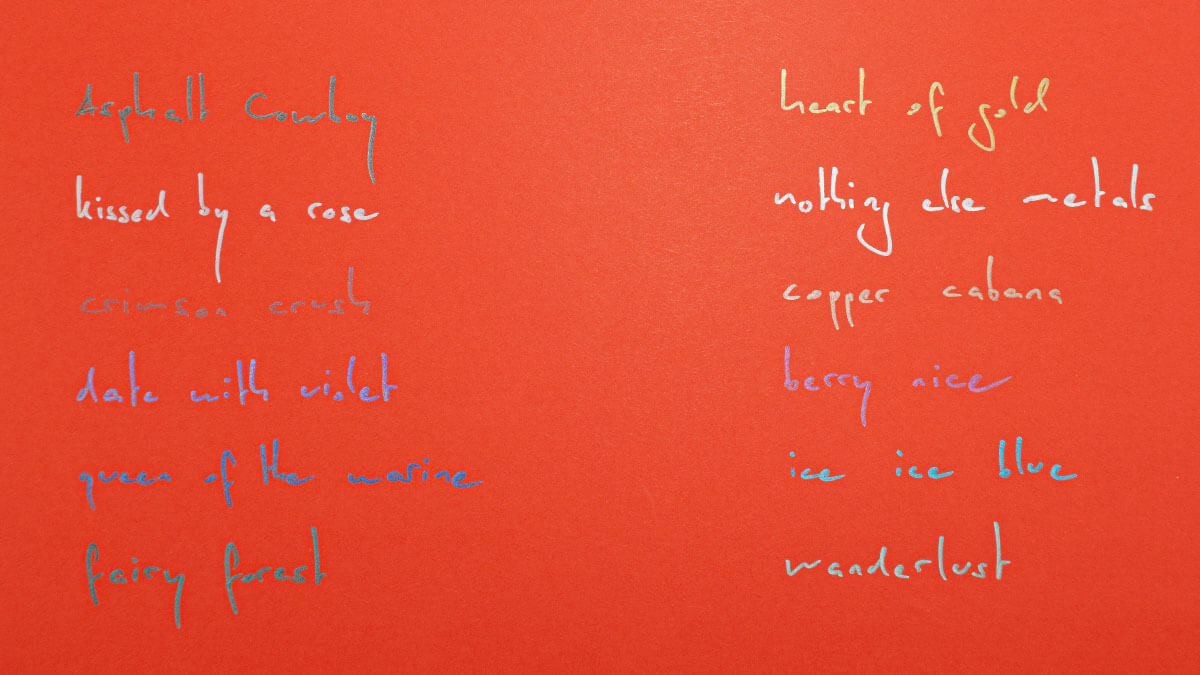 Asphalt Cowboy
kissed by a rose
crimson crush
date with violet
queen of the marine
fairy forest
heart of gold
nothing else metals
copper cabana
berry nice
ice ice blue
wanderlust